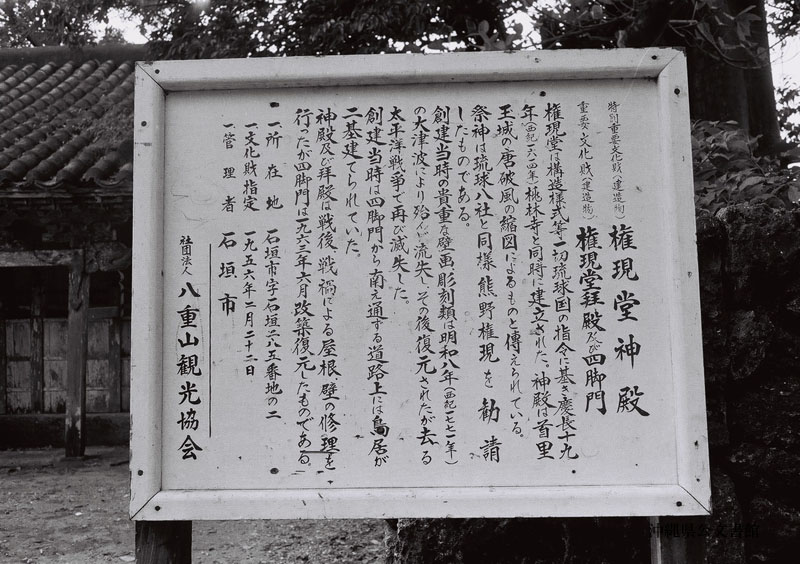 特別重要文化財(建造物) 権現堂神殿
重要文化財(建造物) 権現堂拝殿及び四脚門
権現堂は構造様式等一切琉球国の指令に基き慶長十九
年(西紀一六一四年)桃林寺と同時に建立された。神殿は首里
王城の唐破風の縮図によるものと傳えられている。
祭神は琉球八社と同様熊野権現を勧請
したものである。
創建当時の貴重な壁画彫刻類は明和八年(西紀一七七一年)
の大津波により殆んど流失しその後復元されたが去る
太平洋戦争で再び滅失した。
創建当時は四脚門から南え通ずる道路上には鳥居が
二基建てられていた。
神殿及び拝殿は戦後、戦禍による屋根、壁の修理を
行ったが四脚門は一九六三年六月改築復元したものである。
一所在地 石垣市字石垣二八五番地の二
一文化財指定 一九五六年二月二十二日
一管理者 石垣市
社団法人 八重山観光協会
沖縄県公文書館